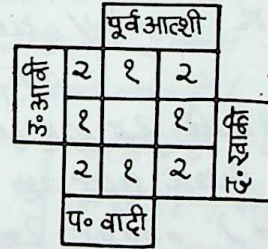 पूर्व आत्शी
उ० आबी
२ १ २
१ १
२ १ २
द० खाकी
प० वादी